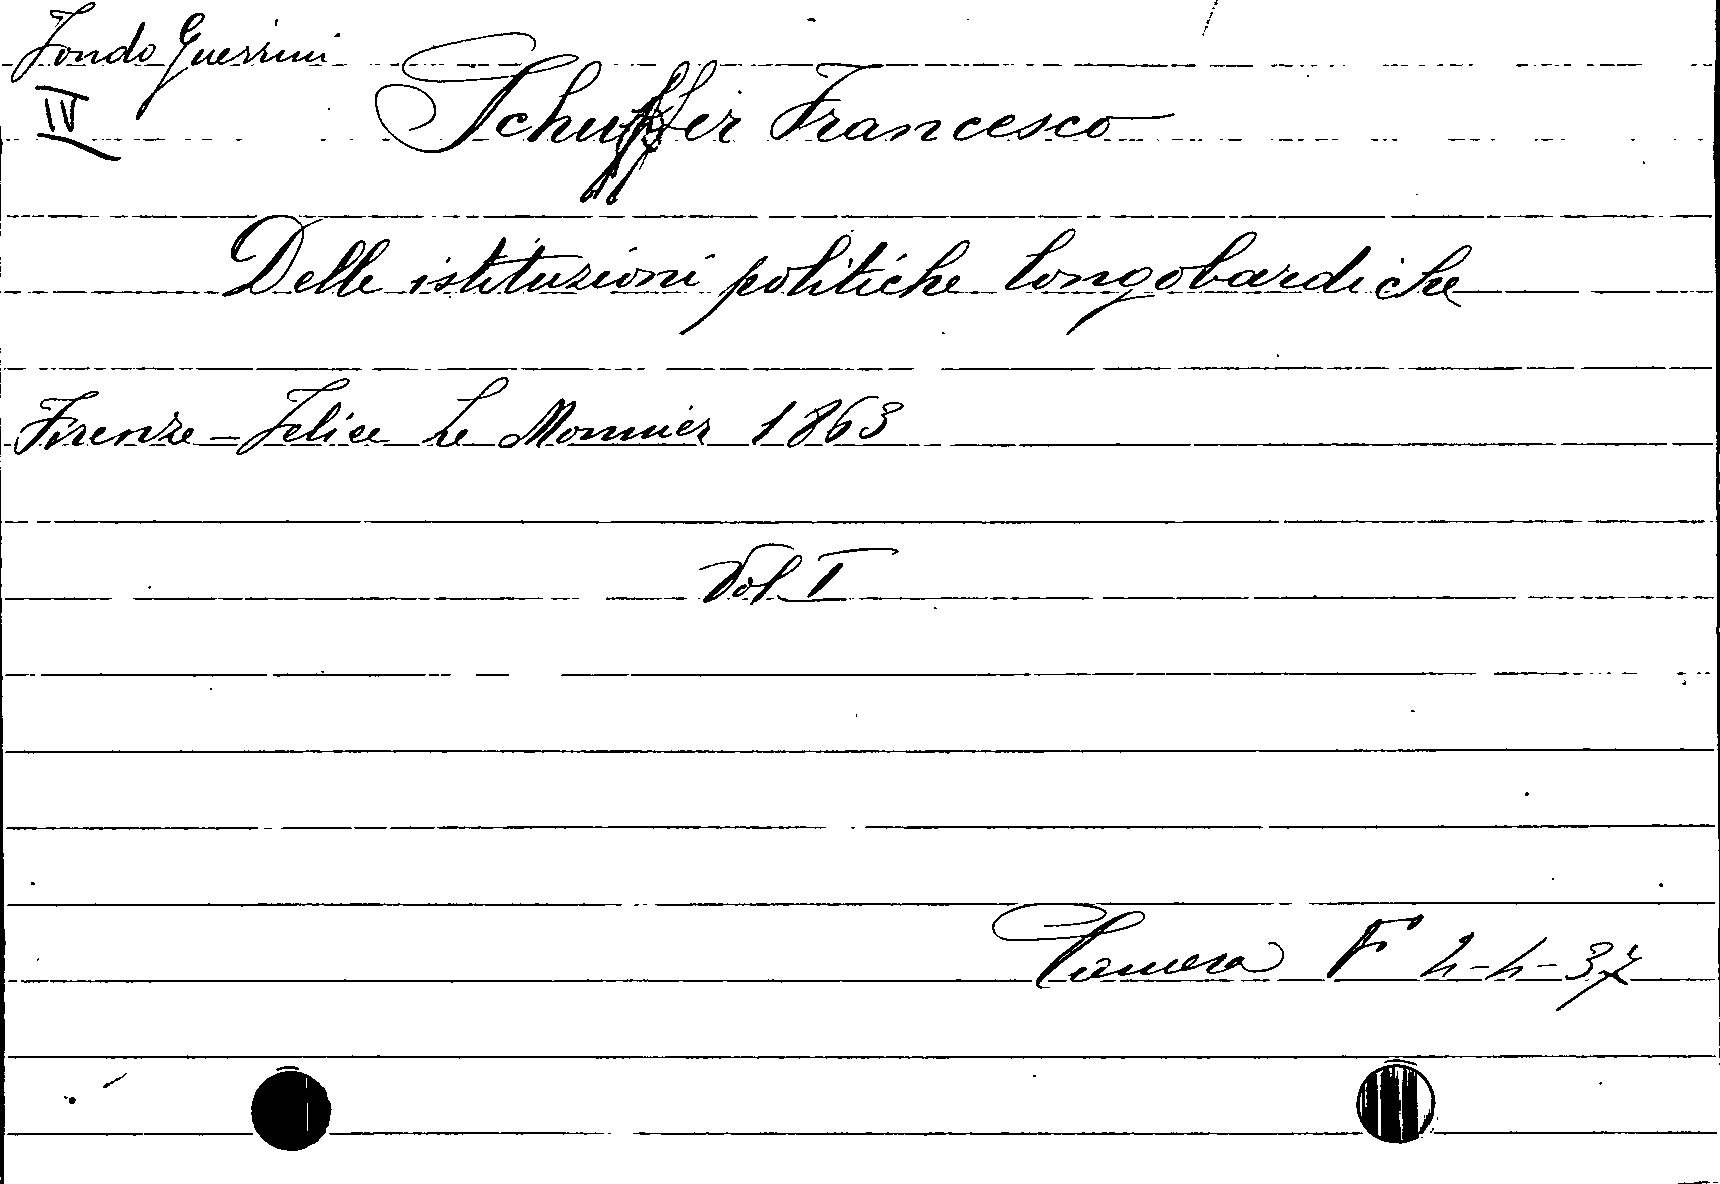 Fondo Guerrini
IV
Schuffer Francesco
Delle istituzioni politiche longobardiche
Firenze - Felice Le Monnier 1863
Vol I
Camera F 4-4-37